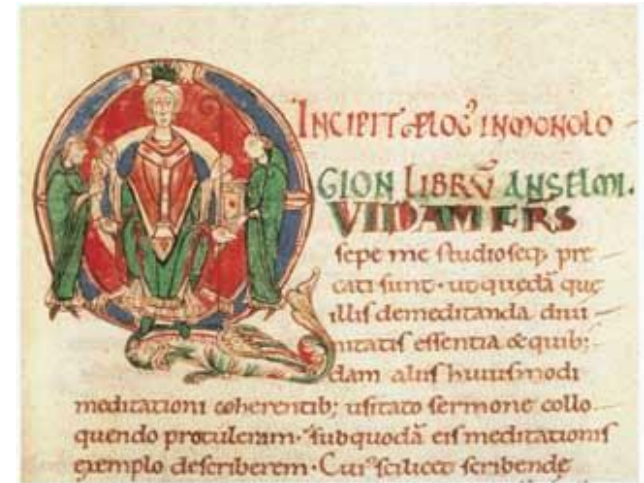 INCIPIT PLOG̅ INMONOLO-
GION LIBRV̅ ANSELMI.
QVIDAM FRS
sepe me studioseq; pre-
cati sunt· ut quedā que
illis demeditanda diui-
nitatis essentia & quib;-
dam aliis huiusmodi
meditationi coherentib; usitato sermone collo-
quendo protuleram· sub quodā eis meditationis
exemplo describerem· Cui scilicet scribende